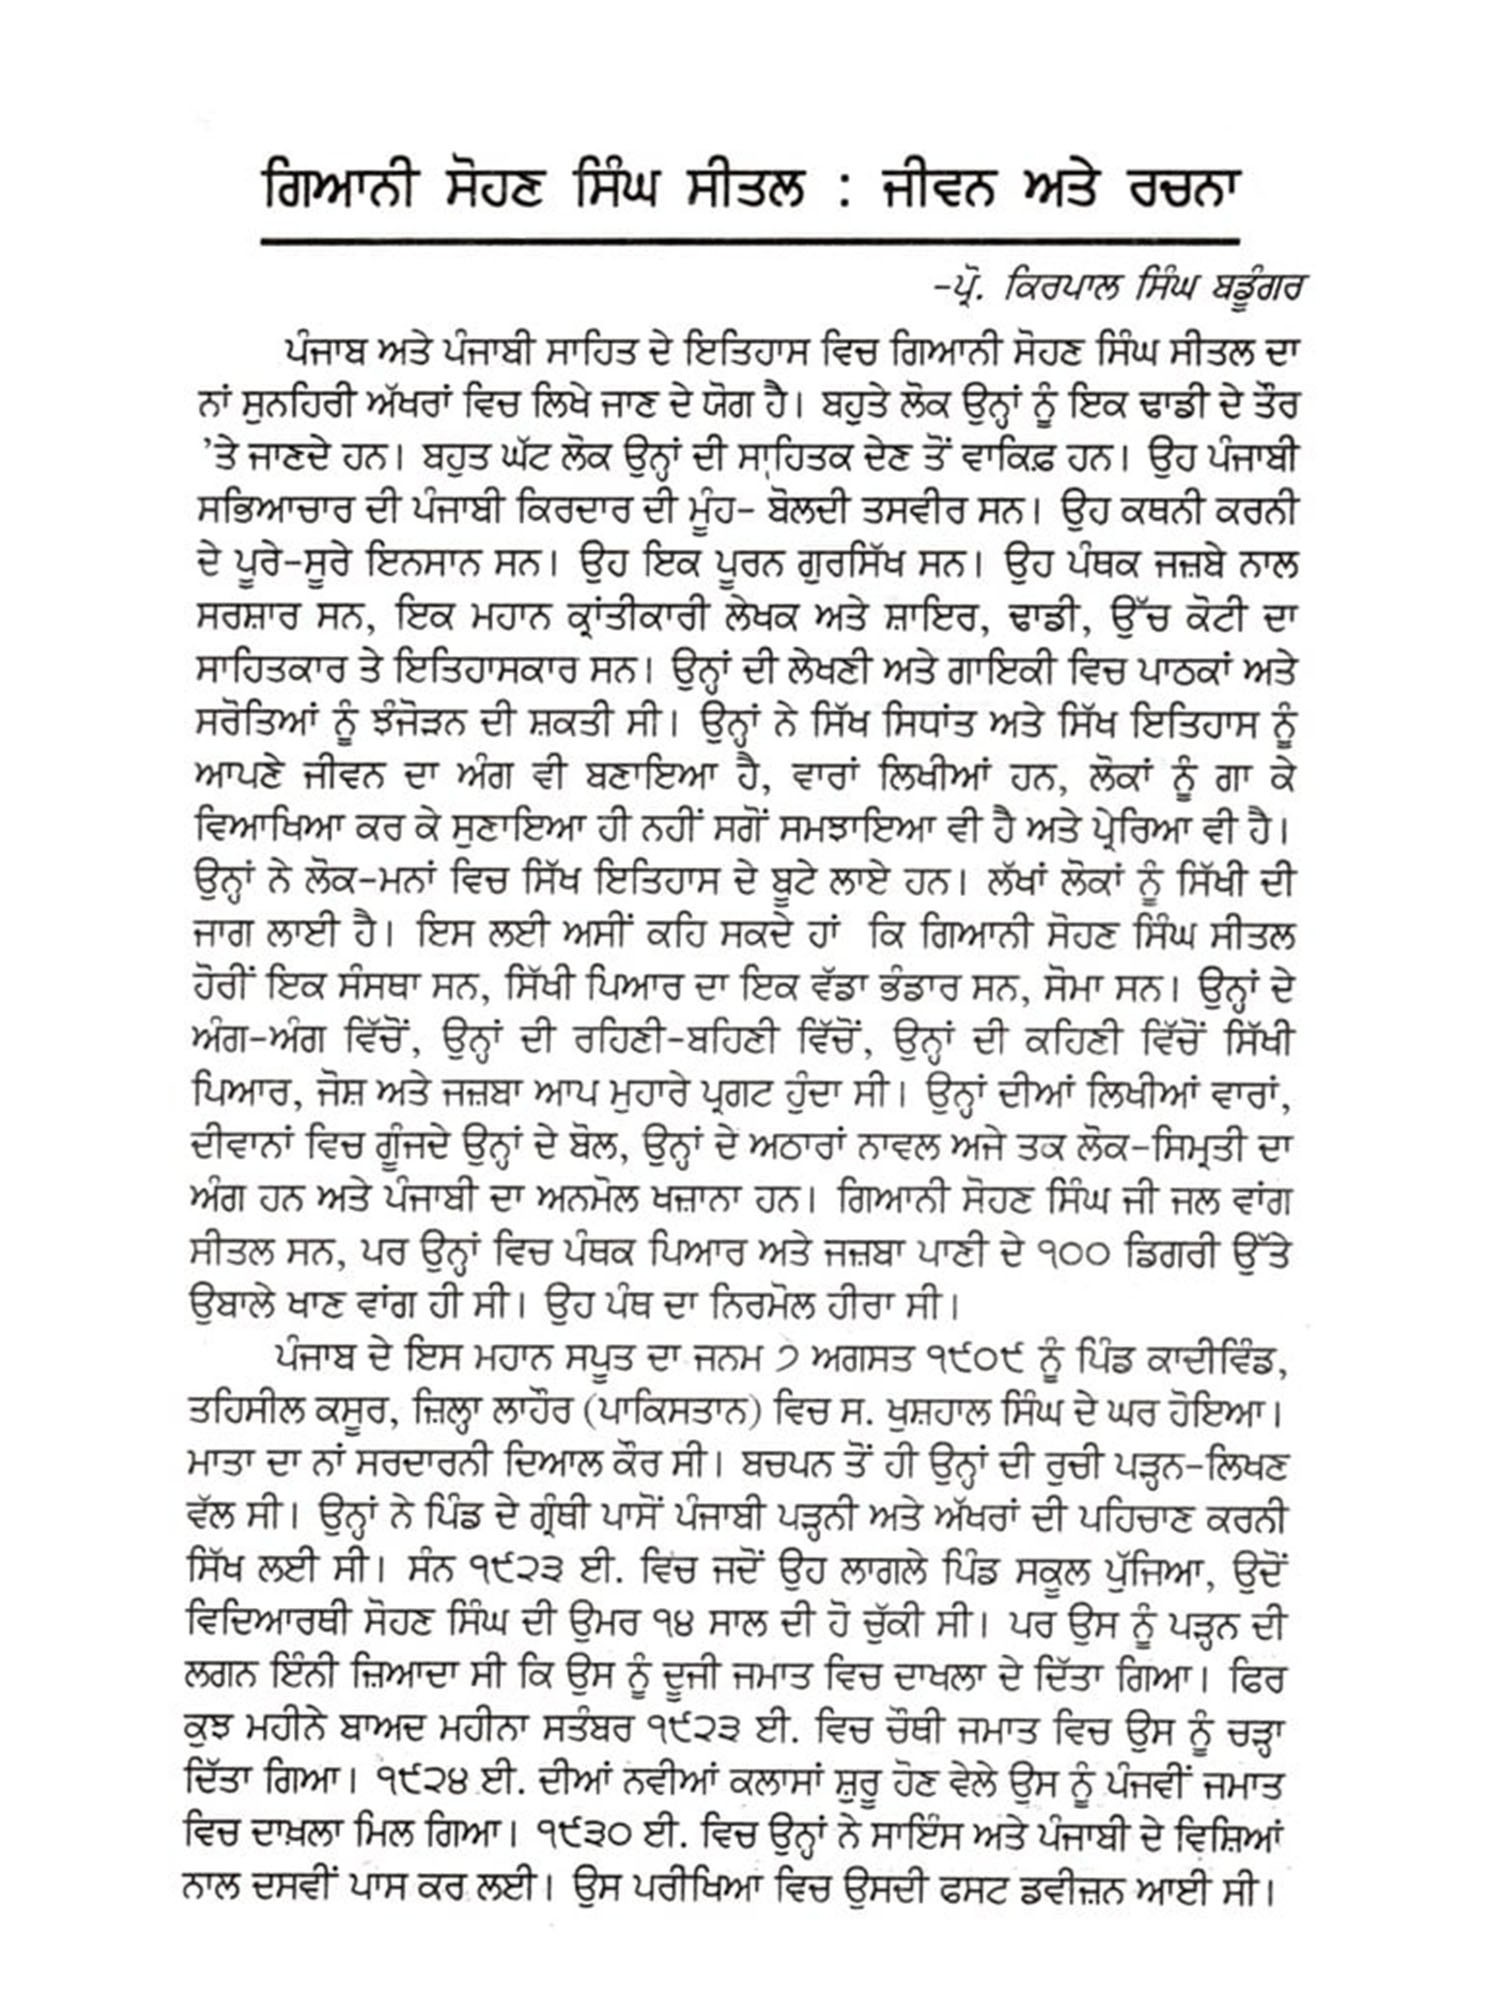 ਗਿਆਨੀ ਸੋਹਣ ਸਿੰਘ ਸੀਤਲ : ਜੀਵਨ ਅਤੇ ਰਚਨਾ
–ਪ੍ਰੋ. ਕਿਰਪਾਲ ਸਿੰਘ ਬਡੂੰਗਰ
ਪੰਜਾਬ ਅਤੇ ਪੰਜਾਬੀ ਸਾਹਿਤ ਦੇ ਇਤਿਹਾਸ ਵਿਚ ਗਿਆਨੀ ਸੋਹਣ ਸਿੰਘ ਸੀਤਲ ਦਾ
ਨਾਂ ਸੁਨਹਿਰੀ ਅੱਖਰਾਂ ਵਿਚ ਲਿਖੇ ਜਾਣ ਦੇ ਯੋਗ ਹੈ। ਬਹੁਤੇ ਲੋਕ ਉਨ੍ਹਾਂ ਨੂੰ ਇਕ ਢਾਡੀ ਦੇ ਤੌਰ
’ਤੇ ਜਾਣਦੇ ਹਨ। ਬਹੁਤ ਘੱਟ ਲੋਕ ਉਨ੍ਹਾਂ ਦੀ ਸਾਹਿਤਕ ਦੇਣ ਤੋਂ ਵਾਕਿਫ਼ ਹਨ। ਉਹ ਪੰਜਾਬੀ
ਸਭਿਆਚਾਰ ਦੀ ਪੰਜਾਬੀ ਕਿਰਦਾਰ ਦੀ ਮੂੰਹ– ਬੋਲਦੀ ਤਸਵੀਰ ਸਨ। ਉਹ ਕਥਨੀ ਕਰਨੀ
ਦੇ ਪੂਰੇ–ਸੂਰੇ ਇਨਸਾਨ ਸਨ। ਉਹ ਇਕ ਪੂਰਨ ਗੁਰਸਿੱਖ ਸਨ। ਉਹ ਪੰਥਕ ਜਜ਼ਬੇ ਨਾਲ
ਸਰਸ਼ਾਰ ਸਨ, ਇਕ ਮਹਾਨ ਕ੍ਰਾਂਤੀਕਾਰੀ ਲੇਖਕ ਅਤੇ ਸ਼ਾਇਰ, ਢਾਡੀ, ਉੱਚ ਕੋਟੀ ਦਾ
ਸਾਹਿਤਕਾਰ ਤੇ ਇਤਿਹਾਸਕਾਰ ਸਨ। ਉਨ੍ਹਾਂ ਦੀ ਲੇਖਣੀ ਅਤੇ ਗਾਇਕੀ ਵਿਚ ਪਾਠਕਾਂ ਅਤੇ
ਸਰੋਤਿਆਂ ਨੂੰ ਝੰਜੋੜਨ ਦੀ ਸ਼ਕਤੀ ਸੀ। ਉਨ੍ਹਾਂ ਨੇ ਸਿੱਖ ਸਿਧਾਂਤ ਅਤੇ ਸਿੱਖ ਇਤਿਹਾਸ ਨੂੰ
ਆਪਣੇ ਜੀਵਨ ਦਾ ਅੰਗ ਵੀ ਬਣਾਇਆ ਹੈ, ਵਾਰਾਂ ਲਿਖੀਆਂ ਹਨ, ਲੋਕਾਂ ਨੂੰ ਗਾ ਕੇ
ਵਿਆਖਿਆ ਕਰ ਕੇ ਸੁਣਾਇਆ ਹੀ ਨਹੀਂ ਸਗੋਂ ਸਮਝਾਇਆ ਵੀ ਹੈ ਅਤੇ ਪ੍ਰੇਰਿਆ ਵੀ ਹੈ।
ਉਨ੍ਹਾਂ ਨੇ ਲੋਕ–ਮਨਾਂ ਵਿਚ ਸਿੱਖ ਇਤਿਹਾਸ ਦੇ ਬੂਟੇ ਲਾਏ ਹਨ। ਲੱਖਾਂ ਲੋਕਾਂ ਨੂੰ ਸਿੱਖੀ ਦੀ
ਜਾਗ ਲਾਈ ਹੈ। ਇਸ ਲਈ ਅਸੀਂ ਕਹਿ ਸਕਦੇ ਹਾਂ ਕਿ ਗਿਆਨੀ ਸੋਹਣ ਸਿੰਘ ਸੀਤਲ
ਹੋਰੀਂ ਇਕ ਸੰਸਥਾ ਸਨ, ਸਿੱਖੀ ਪਿਆਰ ਦਾ ਇਕ ਵੱਡਾ ਭੰਡਾਰ ਸਨ, ਸੋਮਾ ਸਨ। ਉਨ੍ਹਾਂ ਦੇ
ਅੰਗ–ਅੰਗ ਵਿੱਚੋਂ, ਉਨ੍ਹਾਂ ਦੀ ਰਹਿਣੀ–ਬਹਿਣੀ ਵਿੱਚੋਂ, ਉਨ੍ਹਾਂ ਦੀ ਕਹਿਣੀ ਵਿੱਚੋਂ ਸਿੱਖੀ
ਪਿਆਰ, ਜੋਸ਼ ਅਤੇ ਜਜ਼ਬਾ ਆਪ ਮੁਹਾਰੇ ਪ੍ਰਗਟ ਹੁੰਦਾ ਸੀ। ਉਨ੍ਹਾਂ ਦੀਆਂ ਲਿਖੀਆਂ ਵਾਰਾਂ,
ਦੀਵਾਨਾਂ ਵਿਚ ਗੂੰਜਦੇ ਉਨ੍ਹਾਂ ਦੇ ਬੋਲ, ਉਨ੍ਹਾਂ ਦੇ ਅਠਾਰਾਂ ਨਾਵਲ ਅਜੇ ਤਕ ਲੋਕ–ਸਿਮ੍ਰਤੀ ਦਾ
ਅੰਗ ਹਨ ਅਤੇ ਪੰਜਾਬੀ ਦਾ ਅਨਮੋਲ ਖਜ਼ਾਨਾ ਹਨ। ਗਿਆਨੀ ਸੋਹਣ ਸਿੰਘ ਜੀ ਜਲ ਵਾਂਗ
ਸੀਤਲ ਸਨ, ਪਰ ਉਨ੍ਹਾਂ ਵਿਚ ਪੰਥਕ ਪਿਆਰ ਅਤੇ ਜਜ਼ਬਾ ਪਾਣੀ ਦੇ ੧੦੦ ਡਿਗਰੀ ਉੱਤੇ
ਉਬਾਲੇ ਖਾਣ ਵਾਂਗ ਹੀ ਸੀ। ਉਹ ਪੰਥ ਦਾ ਨਿਰਮੋਲ ਹੀਰਾ ਸੀ।
ਪੰਜਾਬ ਦੇ ਇਸ ਮਹਾਨ ਸਪੂਤ ਦਾ ਜਨਮ ੭ ਅਗਸਤ ੧੯੦੯ ਨੂੰ ਪਿੰਡ ਕਾਦੀਵਿੰਡ,
ਤਹਿਸੀਲ ਕਸੂਰ, ਜ਼ਿਲ੍ਹਾ ਲਾਹੌਰ (ਪਾਕਿਸਤਾਨ) ਵਿਚ ਸ. ਖੁਸ਼ਹਾਲ ਸਿੰਘ ਦੇ ਘਰ ਹੋਇਆ।
ਮਾਤਾ ਦਾ ਨਾਂ ਸਰਦਾਰਨੀ ਦਿਆਲ ਕੌਰ ਸੀ। ਬਚਪਨ ਤੋਂ ਹੀ ਉਨ੍ਹਾਂ ਦੀ ਰੁਚੀ ਪੜ੍ਹਨ–ਲਿਖਣ
ਵੱਲ ਸੀ। ਉਨ੍ਹਾਂ ਨੇ ਪਿੰਡ ਦੇ ਗ੍ਰੰਥੀ ਪਾਸੋਂ ਪੰਜਾਬੀ ਪੜ੍ਹਨੀ ਅਤੇ ਅੱਖਰਾਂ ਦੀ ਪਹਿਚਾਣ ਕਰਨੀ
ਸਿੱਖ ਲਈ ਸੀ। ਸੰਨ ੧੯੨੩ ਈ. ਵਿਚ ਜਦੋਂ ਉਹ ਲਾਗਲੇ ਪਿੰਡ ਸਕੂਲ ਪੁੱਜਿਆ, ਉਦੋਂ
ਵਿਦਿਆਰਥੀ ਸੋਹਣ ਸਿੰਘ ਦੀ ਉਮਰ ੧੪ ਸਾਲ ਦੀ ਹੋ ਚੁੱਕੀ ਸੀ। ਪਰ ਉਸ ਨੂੰ ਪੜ੍ਹਨ ਦੀ
ਲਗਨ ਇੰਨੀ ਜ਼ਿਆਦਾ ਸੀ ਕਿ ਉਸ ਨੂੰ ਦੂਜੀ ਜਮਾਤ ਵਿਚ ਦਾਖਲਾ ਦੇ ਦਿੱਤਾ ਗਿਆ। ਫਿਰ
ਕੁਝ ਮਹੀਨੇ ਬਾਅਦ ਮਹੀਨਾ ਸਤੰਬਰ ੧੯੨੩ ਈ. ਵਿਚ ਚੌਥੀ ਜਮਾਤ ਵਿਚ ਉਸ ਨੂੰ ਚੜ੍ਹਾ
ਦਿੱਤਾ ਗਿਆ। ੧੯੨੪ ਈ. ਦੀਆਂ ਨਵੀਆਂ ਕਲਾਸਾਂ ਸ਼ੁਰੂ ਹੋਣ ਵੇਲੇ ਉਸ ਨੂੰ ਪੰਜਵੀਂ ਜਮਾਤ
ਵਿਚ ਦਾਖ਼ਲਾ ਮਿਲ ਗਿਆ। ੧੯੩੦ ਈ. ਵਿਚ ਉਨ੍ਹਾਂ ਨੇ ਸਾਇੰਸ ਅਤੇ ਪੰਜਾਬੀ ਦੇ ਵਿਸ਼ਿਆਂ
ਨਾਲ ਦਸਵੀਂ ਪਾਸ ਕਰ ਲਈ। ਉਸ ਪਰੀਖਿਆ ਵਿਚ ਉਸਦੀ ਫਸਟ ਡਵੀਜ਼ਨ ਆਈ ਸੀ।